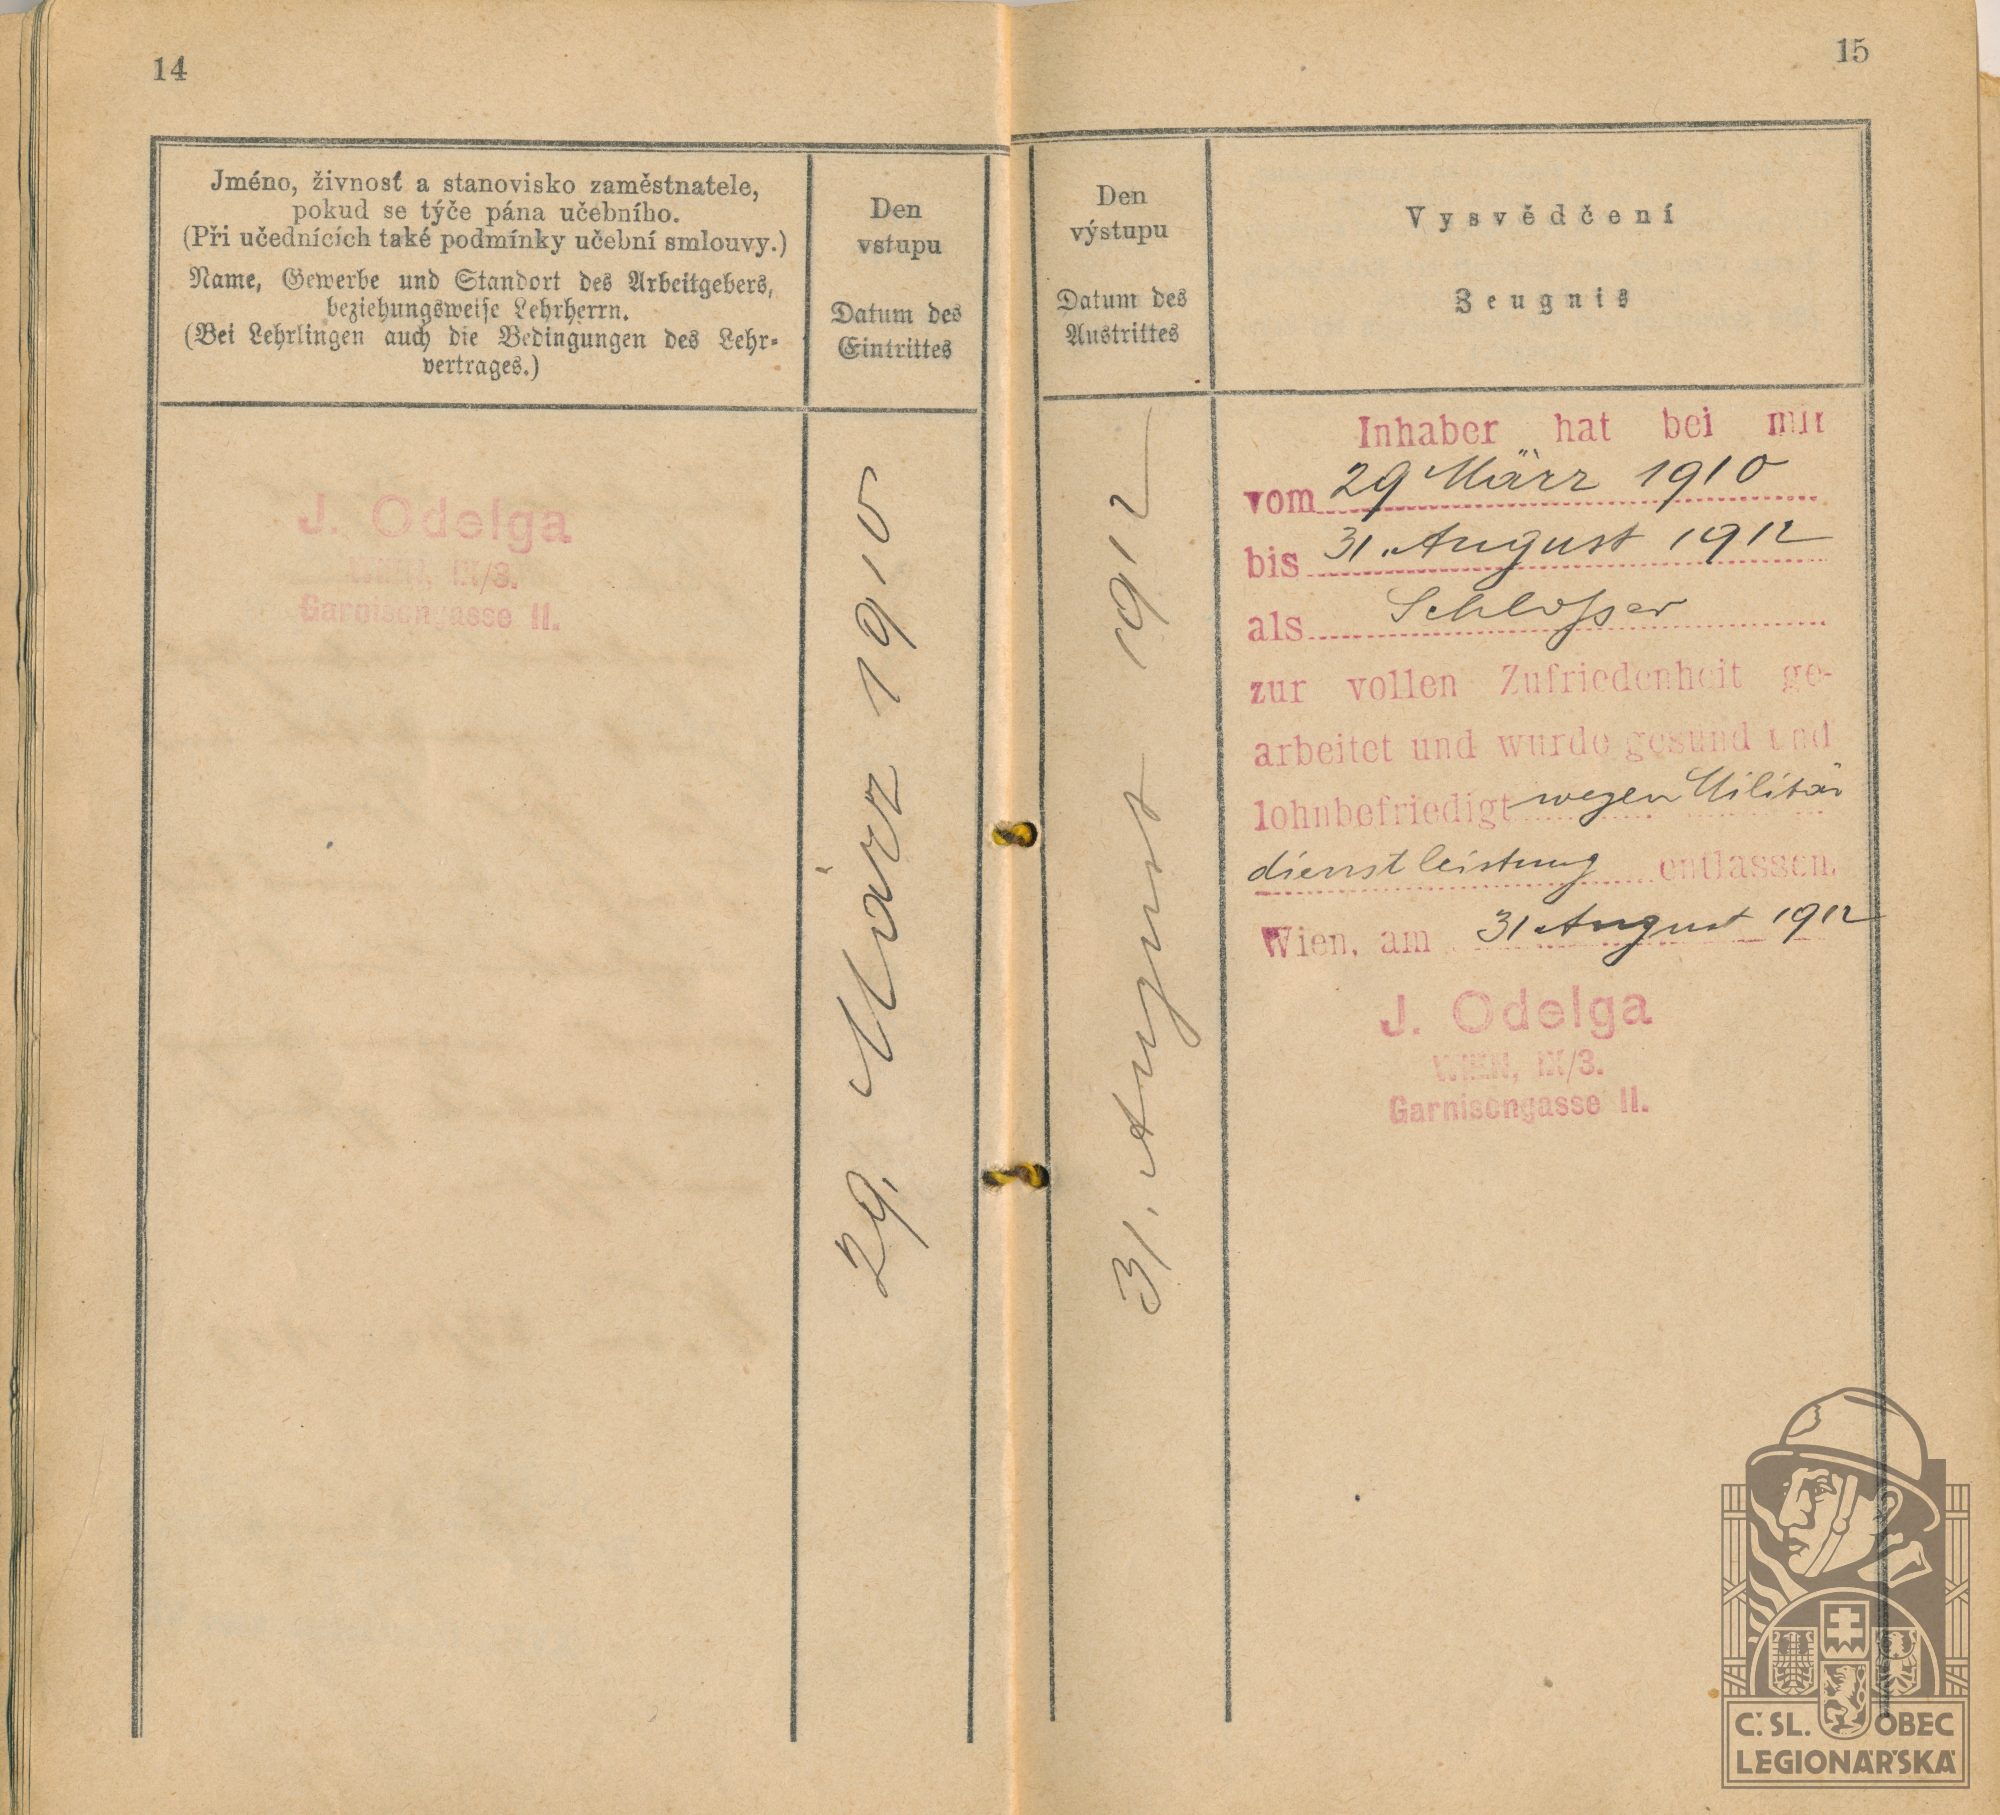 14
Jméno, živnosť a stanovisko zaměstnatele,
pokud se týče pána učebního.
(Při učednících také podmínky učební smlouvy.)
Name, Gewerbe und Standort des Arbeitgebers,
beziehungsweise Lehrherrn.
(Bei Lehrlingen auch die Bedingungen des Lehr-
vertrages.)
Den
vstupu
Datum des
Eintrittes
J. Odelga
WIEN, IX/3.
Garnisongasse 11.
29. März 1910
15
Den
výstupu
Datum des
Austrittes
Vysvědčení
Zeugnis
31. August 1912
Inhaber hat bei mir
vom 29 März 1910
bis 31. August 1912
als Schlosser
zur vollen Zufriedenheit ge-
arbeitet und wurde gesund und
lohnbefriedigt wegen Militär
dienstleistung entlassen.
Wien, am 31 August 1912
J. Odelga
WIEN, IX/3.
Garnisongasse 11.
Č. SL. OBEC
LEGIONÁŘSKÁ